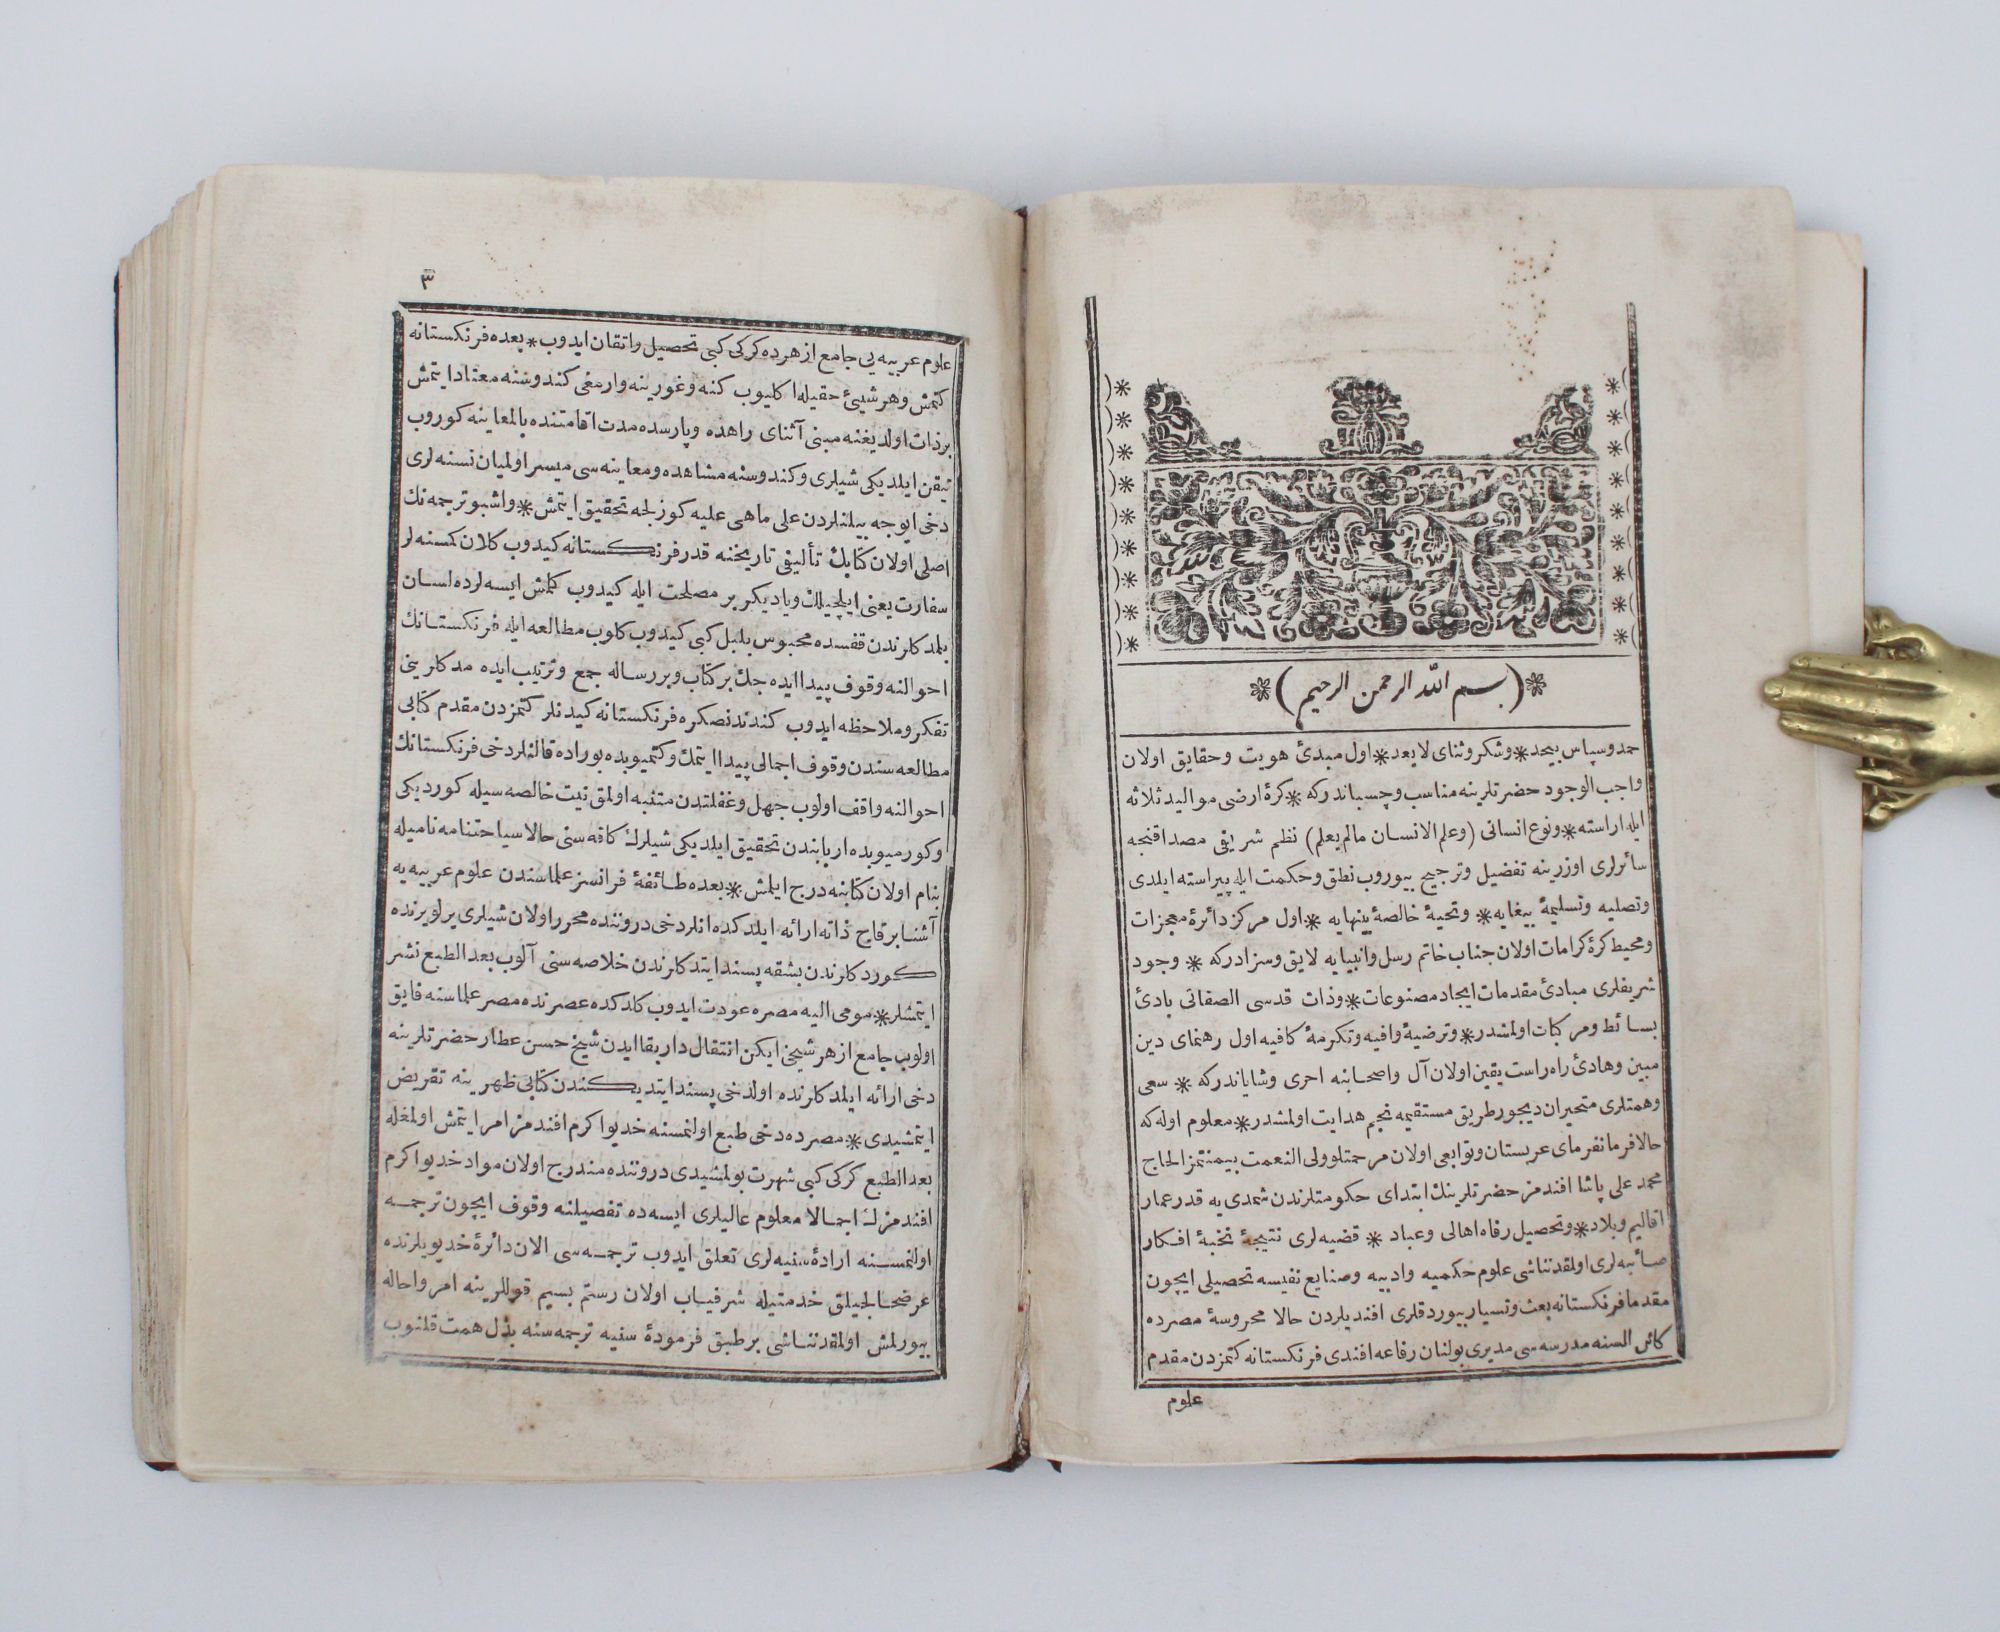 ﴿ بسم الله الرحمن الرحيم ﴾
حمد وسپاس بيحد * وشكر وثناى لا يعد * اول مبدئ هويت وحقايق اولان
واجب الوجود حضرتلرينه مناسب وچسباندركه * كرۀ ارضى مواليد ثلاثه
ايله اراسته * ونوع انسانى (وعلم الانسان مالم يعلم) نظم شريفى مصداقنجه
سائرلرى اوزرينه تفضيل وترجيح بيوروب نطق وحكمت ايله پيراسته ايلدى
وتصليه وتسليمۀ بيغايه * وتحيۀ خالصۀ بينهايه * اول مركز دائرۀ معجزات
ومحيط كرۀ كرامات اولان جناب خاتم رسل وانبيايه لايق وسزادركه * وجود
شريفلرى مبادئ مقدمات ايجاد مصنوعات * وذات قدسى الصفاتى بادئ
بسائط ومركبات اولمشدر * وترضيۀ وافيه وتكرمۀ كافيه اول رهنماى دين
مبين وهادئ راه راست يقين اولان آل واصحابنه احرى وشاياندركه * سعى
وهمتلرى متحيران ديجور طريق مستقيمه نجم هدايت اولمشدر * معلوم اوله كه
حالا فرمانفرماى عربستان وتوابعى اولان مرحمتلو ولى النعمت بيمنتمز الحاج
محمد على پاشا افندمز حضرتلرينك ابتداى حكومتلرندن شمدى يه قدر عمار
اقاليم وبلاد * وتحصيل رفاه اهالى وعباد * قضيه لرى نتيجۀ نخبۀ افكار
صائبه لرى اولمقدنناشى علوم حكميه وادبيه وصنايع نفيسه تحصيلى ايچون
مقدما فرنكستانه بعث وتسيار بيوردقلرى افنديلردن حالا محروسۀ مصرده
كائن السنه مدرسه سى مديرى بولنان رفاعه افندى فرنكستانه كتمزدن مقدم
علوم
٣
علوم عربيه يى جامع ازهرده كركى كبى تحصيل واتقان ايدوب * بعده فرنكستانه
كتمش وهر شيئ حقيله اكليوب كنه وغورينه وارمغى كندوسنه معتاد ايتمش
بر ذات اولديغنه مبنى آثناى راهده وپارسده مدت اقامتنده بالمعاينه كوروب
تيقن ايلديكى شيلرى وكندوسنه مشاهده ومعاينه سى ميسر اولميان نسنه لرى
دخى ايوجه بيلنلردن على ماهى عليه كوزلجه تحقيق ايتمش * واشبو ترجمه نك
اصلى اولان كتابك تأليفى تاريخنه قدر فرنكستانه كيدوب كلان كمسنه لر
سفارت يعنى ايلچيلك وياديكر بر مصلحت ايله كيدوب كلمش ايسه لرده لسان
بلمدكلرندن قفسده محبوس بلبل كبى كيدوب كلوب مطالعه ايله فرنكستانك
احوالنه وقوف پيدا ايده جك بر كتاب وبر رساله جمع وترتيب ايده مدكلرينى
تفكر وملاحظه ايدوب كندندنصكره فرنكستانه كيدنلر كتمزدن مقدم كتابى
مطالعه سندن وقوف اجمالى پيدا ايتمك وكتميوبده بوراده قالنلر دخى فرنكستانك
احوالنه واقف اولوب جهل وغفلتدن متنبه اولمق نيت خالصه سيله كورديكى
وكورميوبده اربابندن تحقيق ايلديكى شيلرك كافه سنى حالا سياحتنامه ناميله
بنام اولان كتابنه درج ايلمش * بعده طائفۀ فرانسز علماسندن علوم عربيه يه
آشنا بر قاچ ذاته ارائه ايلدكده انلر دخى دروننده محرر اولان شيلرى يرلو يرنده
كوردكلرندن بشقه پسند ايتدكلرندن خلاصه سنى آلوب بعد الطبع نشر
ايتمشلر * مومى اليه مصره عودت ايدوب كلدكده عصرنده مصر علماسنه فايق
اولوب جامع ازهر شيخى ايكن انتقال دار بقا ايدن شيخ حسن عطار حضرتلرينه
دخى ارائه ايلدكلرنده اولدخى پسند ايتديكندن كتابى ظهرينه تقريض
ايتمشيدى * مصرده دخى طبع اولنمسنه خديو اكرم افندمز امر ايتمش اولمغله
بعد الطبع كركى كبى شهرت بولمشيدى دروننده مندرج اولان مواد خديو اكرم
افندمزك اجمالا معلوم عاليلرى ايسه ده تفصيلنه وقوف ايچون ترجمه
اولنمسنه ارادۀ سنيه لرى تعلق ايدوب ترجمه سى الان دائرۀ خديويلرنده
عرضحالجيلق خدمتيله شرفياب اولان رستم بسيم قوللرينه امر واحاله
بيورلمش اولمقدنناشى بر طبق فرمودۀ سنيه ترجمه سنه بذل همت قلنوب